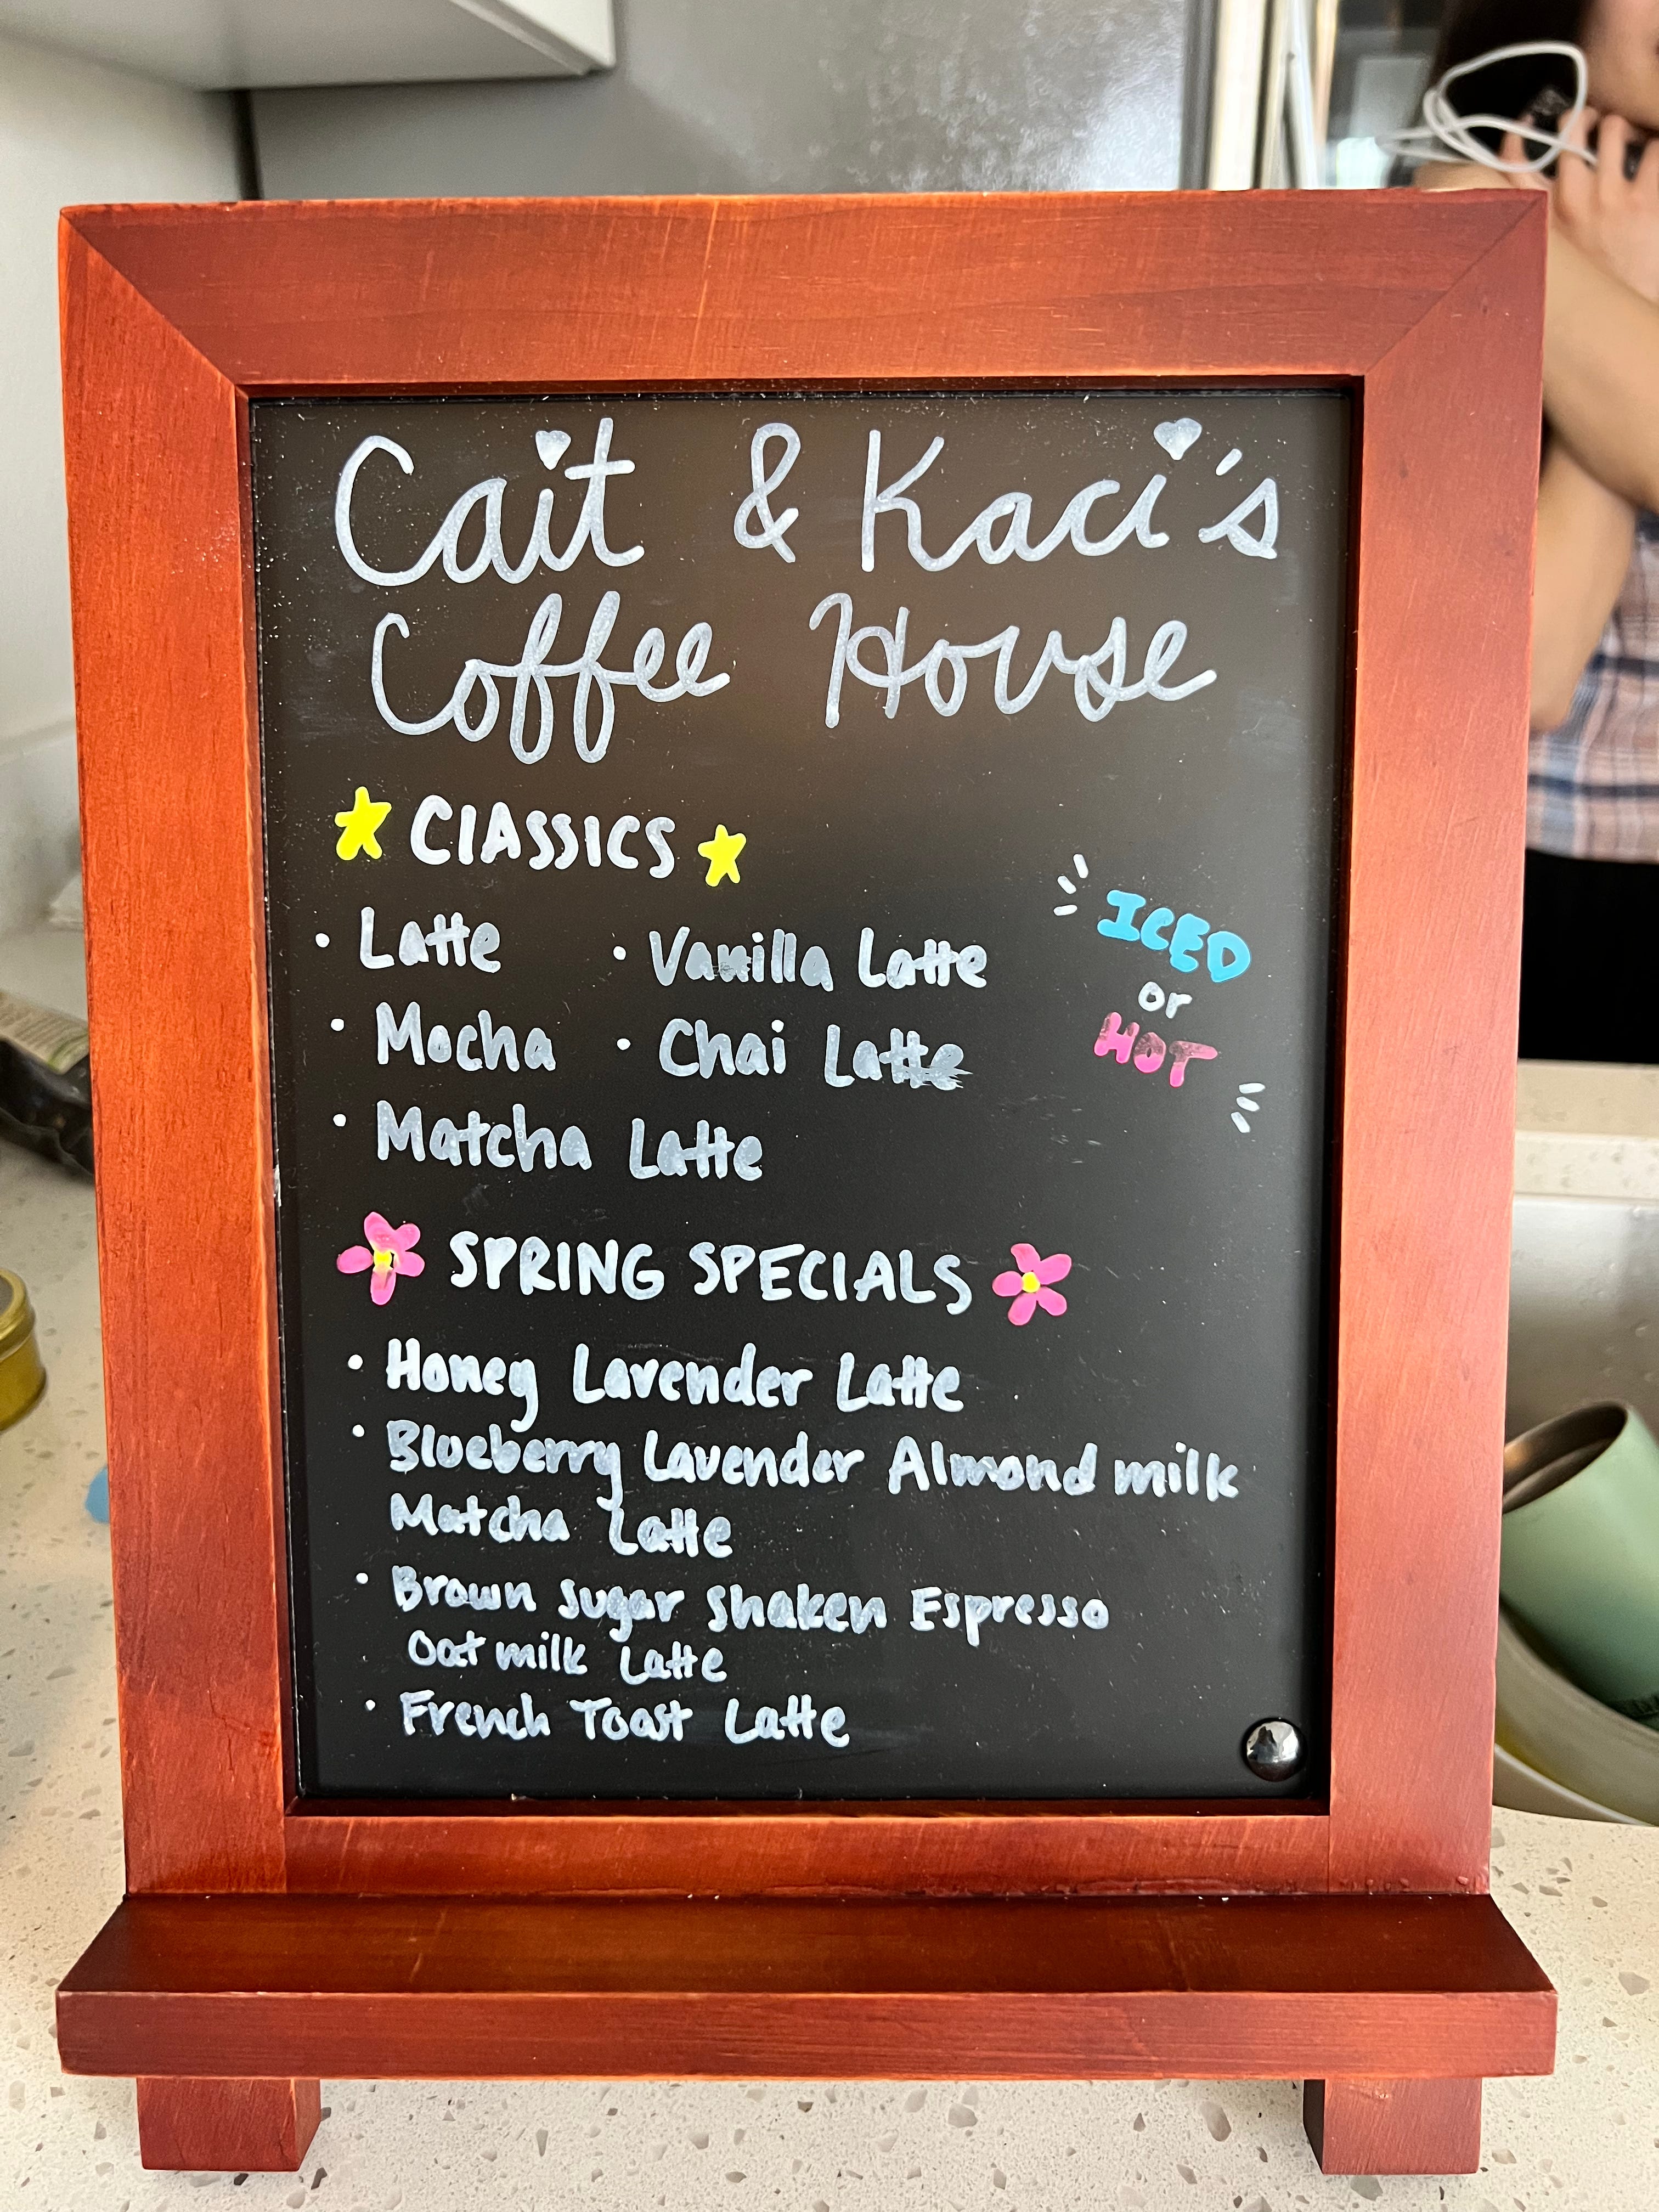 Cait & Kaci's
Coffee House
CLASSICS
• Latte • Vanilla Latte
• Mocha • Chai Latte
• Matcha Latte
ICED
or
HOT
SPRING SPECIALS
• Honey Lavender Latte
• Blueberry Lavender Almond milk
Matcha Latte
• Brown Sugar Shaken Espresso
Oat milk Latte
• French Toast Latte